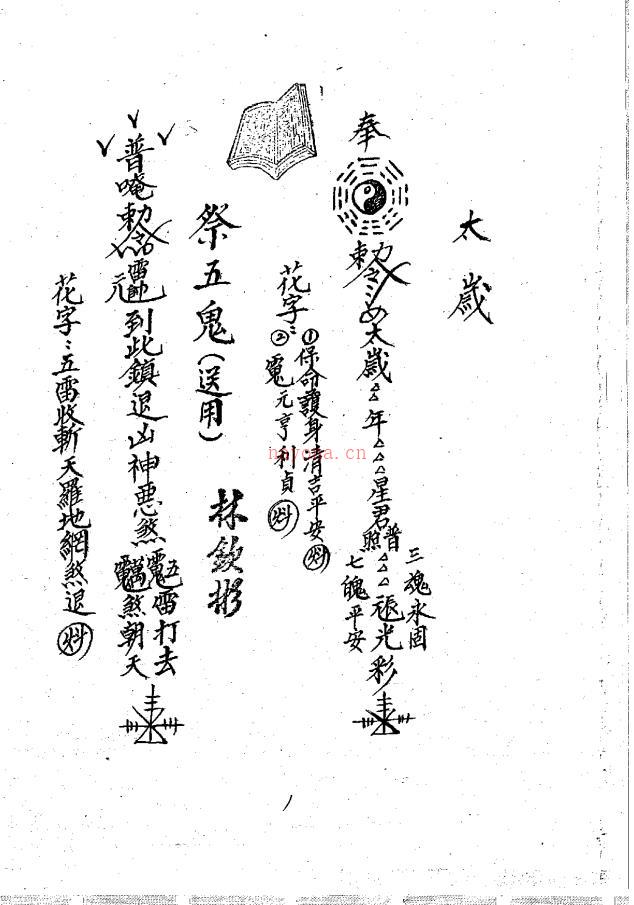 太歲
奉
勅令 太歲△△年△△△星君普照△△△張光彩
三魂永固
七魄平安
花字：①保命護身清吉平安
②元亨利貞
祭五鬼（送用）
林欽彬
普唵勅令雷元帥到此鎮退凶神惡煞
五雷打去
煞朝天
花字：五雷收斬天羅地網煞退
1